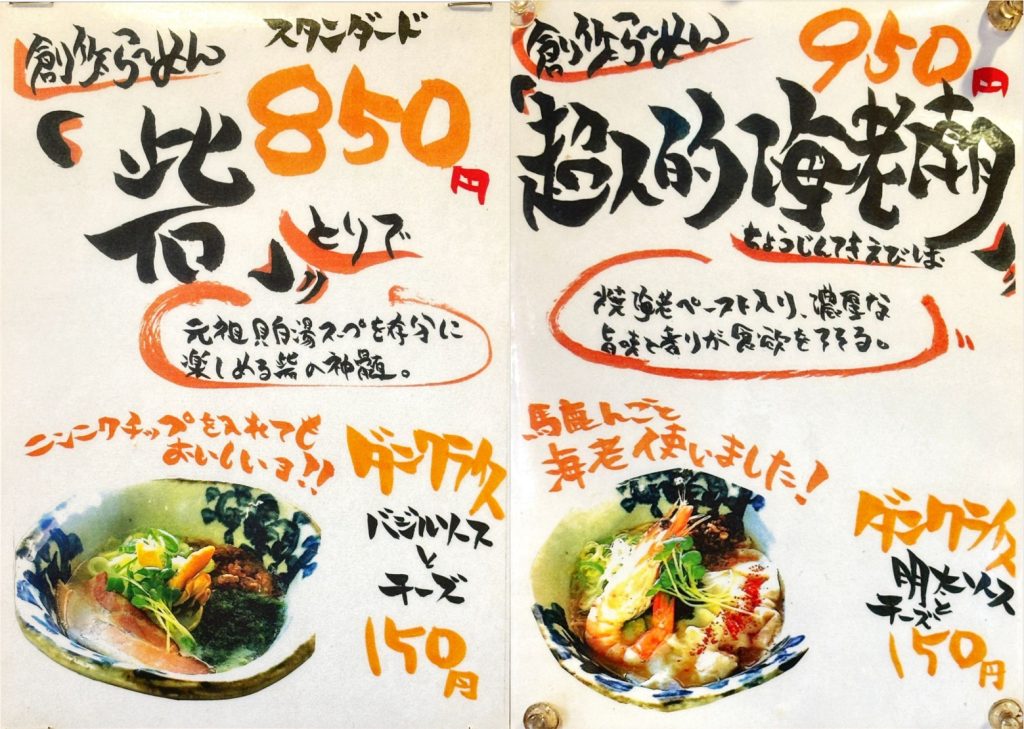 創作らーめん
スタンダード
850円
『砦』
とりで
元祖貝白湯スープを存分に
楽しめる砦の神髄。
ニンニクチップを入れても
おいしいヨ!!
ダンクライス
バジルソース
と
チーズ
150円
創作らーめん
950円
『超人的海老潮』
ちょうじんてきえびしお
焼海老ペースト入り、濃厚な
旨味と香りが食欲をそそる。
馬鹿んごと
海老使いました!
ダンクライス
明太ソース
と
チーズ
150円